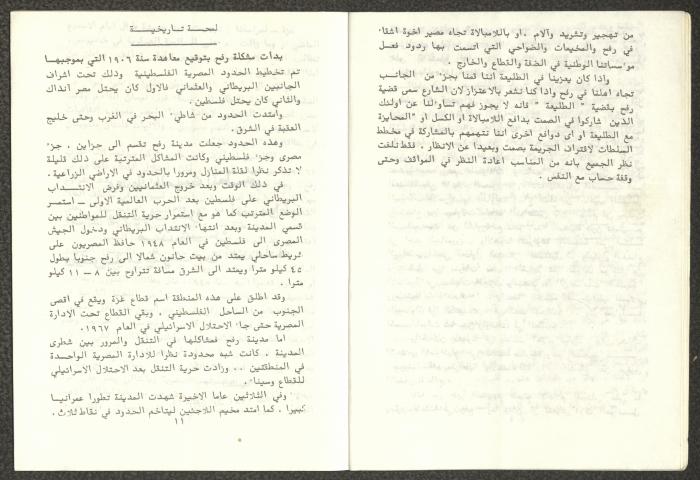 من تهجير وتشريد وآلام . او باللامبالاة تجاه مصير اخوة اشقاء
في رفح والمخيمات والضواحي التي اتسمت بها ردود فعل
مؤسساتنا الوطنية في الضفة والقطاع والخارج .
واذا كان يعزينا في الطليعة اننا قمنا بجزء من الجانب
تجاه اهلنا في رفح واذا كنا نشعر بالاعتزاز لان الشارع سمى قضية
رفح بقضية " الطليعة " فانه لا يجوز فهم تساؤلنا عن اولئك
الذين شاركوا في الصمت بدافع اللامبالاة او الكسل او "المحايرة
مع الطليعة او اى دوافع اخرى اننا نتهمهم بالمشاركة في مخطط
السلطات لاقتراف الجريمة بصمت وبعيدا عن الانظار . فقط نلفت
نظر الجميع بانه من المناسب اعادة النظر في المواقف وحتى
وقفة حساب مع النفس .
لمحــة تـاريخيــة
بدأت مشكلة رفح بتوقيع معاهدة سنة ١٩٠٦ التي بموجبهـا
تم تخطيط الحدود المصرية الفلسطينية وذلك تحت اشراف
الجانبين البريطاني والعثماني فالاول كان يحتل مصر آنذاك
والثاني كان يحتل فلسطين .
وامتدت الحدود من شاطيء البحر في الغرب وحتى خليج
العقبة في الشرق .
وهذه الحدود جعلت مدينة رفح تقسم الى جزأين . جزء
مصرى وجزء فلسطيني وكانت المشاكل المترتبة على ذلك قليلة
لا تذكر نظرا لقلة المنازل ومرورا بالحدود في الاراضي الزراعية .
في ذلك الوقت وبعد خروج العثمانيين وفرض الانتــداب
البريطاني على فلسطين بعد الحرب العالمية الاولى ــ استمــر
الوضع المترتب كما هو مع استمرار حرية التنقل للمواطنين بين
قسمي المدينة وبعد انتهاء الانتداب البريطاني ودخول الجيش
المصرى الى فلسطين في العام ١٩٤٨ حافظ المصريون على
شريط ساحلي يمتد من بيت حانون شمالا الى رفح جنوبا بطول
٤٥ كيلو مترا ويمتد الى الشرق مسافة تتراوح بين ٨ ــ ١١ كيلو
مترا .
وقد اطلق على هذه المنطقة اسم قطاع غزة ويقع في اقصى
الجنوب من الساحل الفلسطيني . وبقي القطاع تحت الادارة
المصرية حتى جاء الاحتلال الاسرائيلي في العام ١٩٦٧ .
اما مدينة رفح فمشاكلها في التنقل والمرور بين شطرى
المدينة . كانت شبه محدودة نظرا للادارة المصرية الواحـدة
في المنطقتين .. وزادت حرية التنقل بعد الاحتلال الاسرائيلي
للقطاع وسيناء .
وفي الثلاثين عاما الاخيرة شهدت المدينة تطورا عمرانيـا
كبيرا . كما امتد مخيم اللاجئين ليتاخم الحدود في نقاط ثلاث .
١١